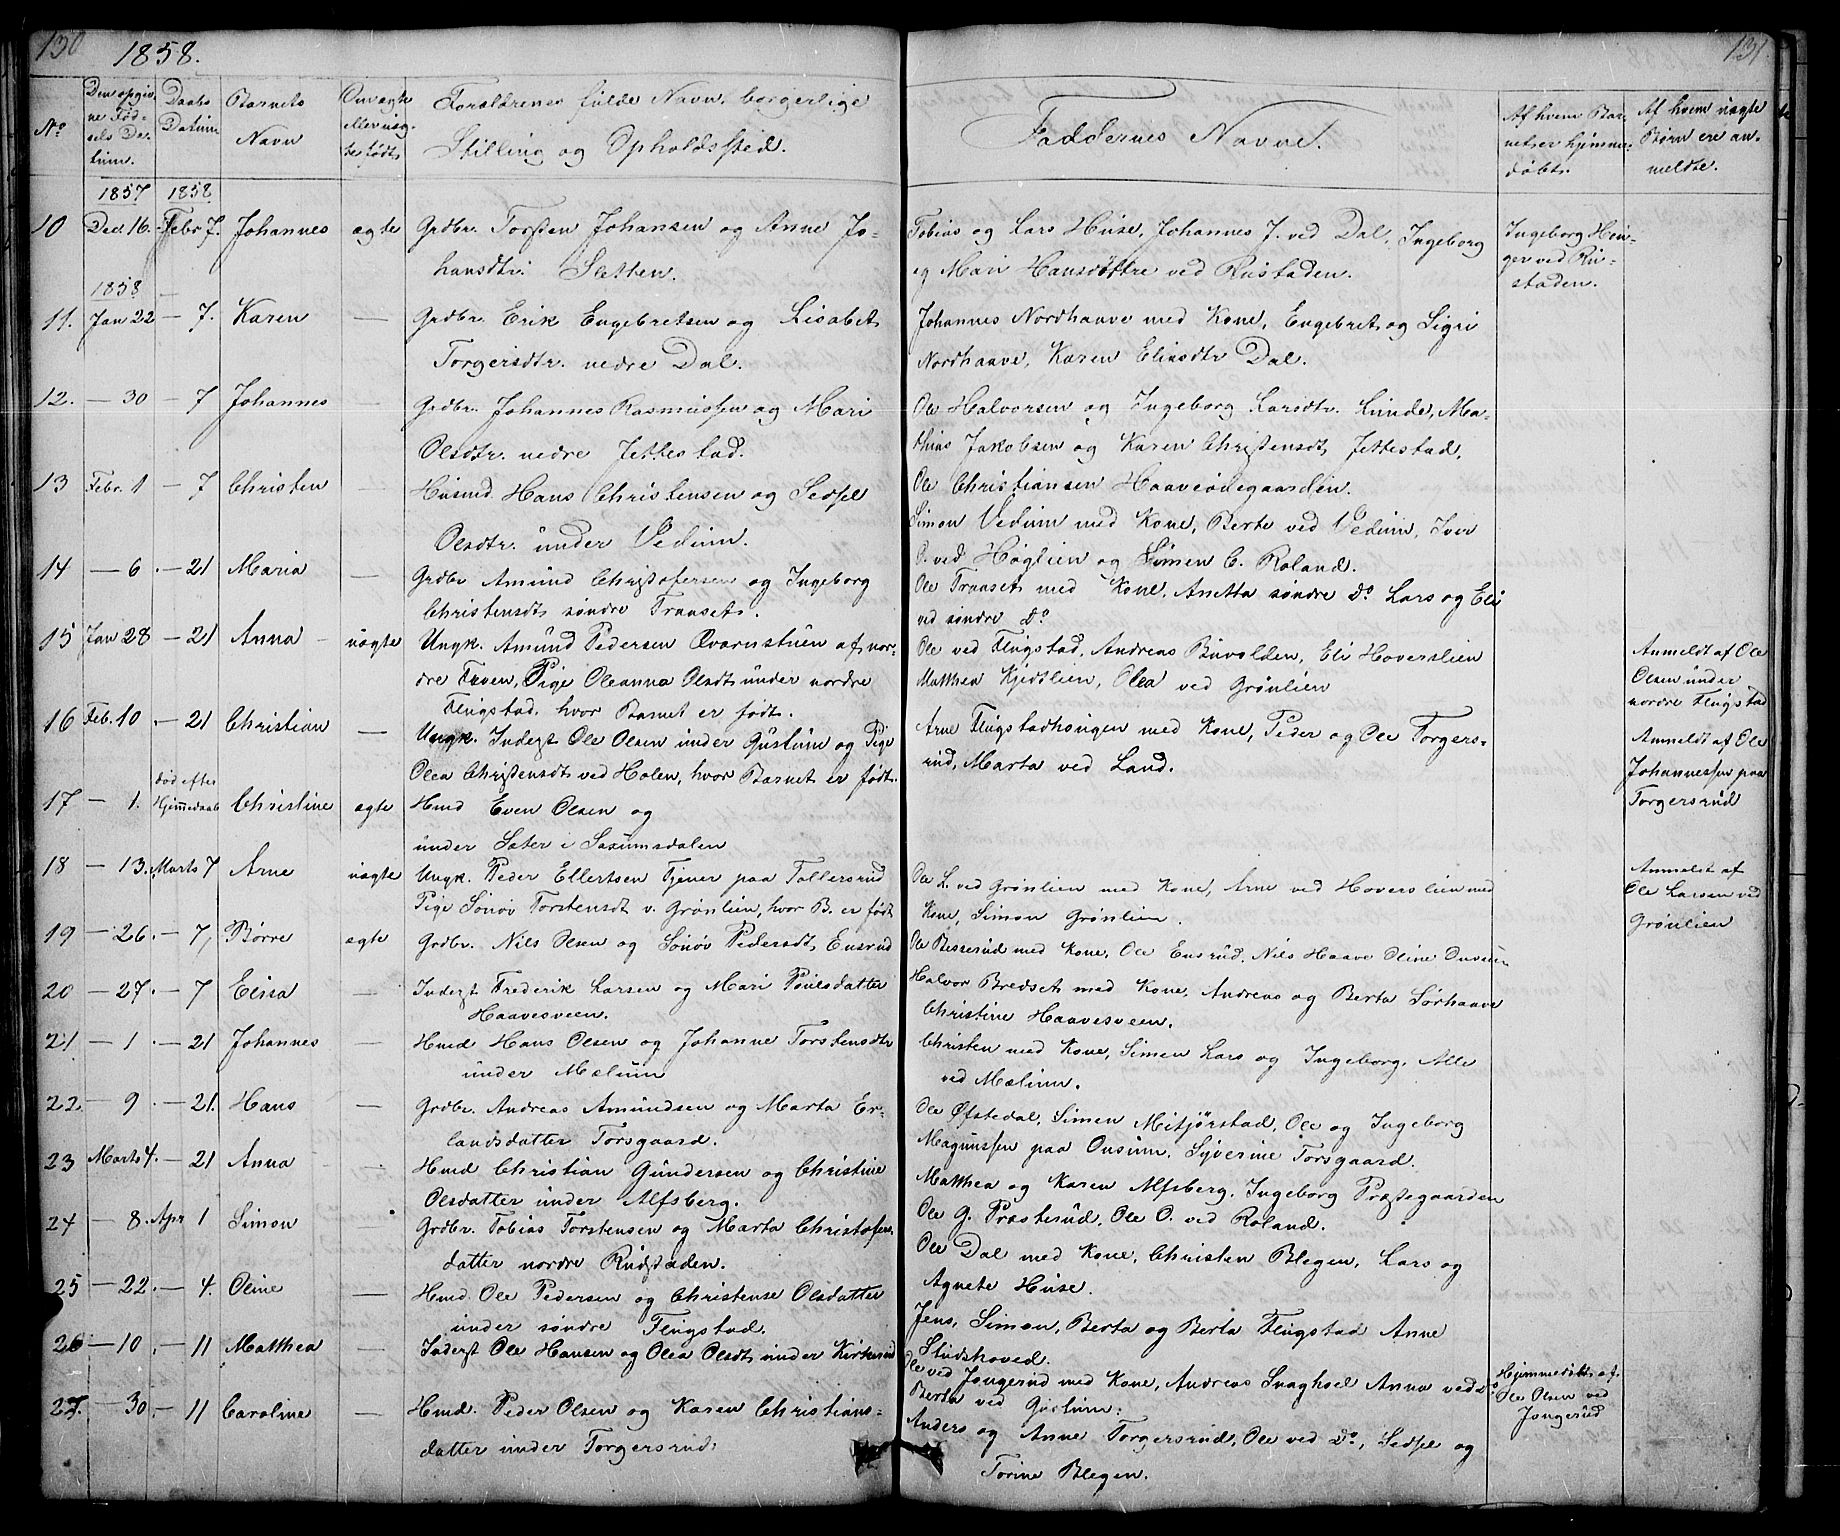 130
1858.
131.
No
Den opgiv.
ne Fød-
sels Da-
tum.
Daabs
Datum
Barnets
Navn
Om ægte
eller uæg-
te født
Forældrenes fulde Navn, borgerlige
Stilling og Opholdssted.
Faddernes Navne.
Af hvem Bar-
net er hjemme-
døbt.
Af hvem uægte
Børn ere an-
meldte.
1857 1858
10 Dec. 16. Febr 7. Johannes ægte Grdbr. Torsten Johansen og Anne Jo-
hansdtr. Sletten.
Tobias og Lars Huse, Johannes J. ved Dal, Ingeborg
og Mari Hansdøttre ved Rustaden.
Ingeborg Hen-
ger ved Ru-
staden.
1858
11. Jan 22 — 7. Karen — Grdbr. Erik Engebretsen og Lisabet
Torgersdtr. nedre Dal.
Johannes Nordhaave med Kone, Engebret og Sigri
Nordhaave, Karen Eliasdtr Dal.
12. — 30 — 7 Johannes — Grdbr. Johannes Rasmussen og Mari
Olsdtr. nedre Jettestad.
Ole Halvorsen og Ingeborg Larsdtr. Lunde, Ma-
thias Jakobsen og Karen Christensdt Jettestad,
Ole Christiansen Haaveødegaarden.
13 Febr. 1 — 7 Christen — Husmd. Hans Christensen og Sedsel
Olsdtr. under Vedum.
Simon Vedum med Kone, Berte ved Vedum, Iver
O. ved Høglien og Simen C. Roland.
14 — 6. — 21 Maria — Grdbr Amund Christofersen og Ingeborg
Christensdt søndre Traaset.
Ole Traaset med Kone, Anetta søndre Do Lars og Eli
ved søndre Do
15 Jan 28 — 21 Anna uægte Ungk. Amund Pedersen Qvarnstuen af nor-
dre Fæven, Pige Oleanna Olsdt under nordre
Flugstad, hvor Barnet er født.
Ole ved Flugstad, Andreas Buvolden, Eli Hoverslien
Matthea Kjedtlien, Olea ved Grønlien
Anmeldt af Ole
Olsen under
nordre Flugstad
16 Feb. 10. — 21 Christian — Ungk. Inderst Ole Olsen under Gustum og Pige
Olea Christensdt ved Holen, hvor Barnet er født.
Arne Flugstadhougen med Kone, Peder og Ole Torgers-
rud, Marta ved Land.
Anmeldt af Ole
Johannessen paa
Torgersrud
17 — 1. død efter
Hjemmedaab Christine ægte Hmd Even Olsen og
under Sæter i Saxumsdalen
18 — 13. Marts 7 Arne uægte Ungk. Peder Ellertsen Tjener paa Tollersrud
Pige Sønøv Torstensdt v. Grønlien, hvor B. er født
Ole L. ved Grønlien med Kone, Arne ved Hoverslien med
Kone, Simon Grønlien.
Anmeldt af
Ole Larsen ved
Grønlien
19 — 26. — 7, Børre ægte Grdbr. Nils Olsen og Sønøv Pedersdt Ensrud
Ole Bisserud med Kone, Ole Ensrud, Nils Haave Oline
20 — 27. — 7 Elisa — Inderst Frederik Larsen og Mari Poulsdatter
Haavesveen.
Halvor Bredset med Kone, Andreas og Berta Sørhaave
Christine Haavesveen.
21 — 1. — 21 Johannes — Hmd Hans Olsen og Johanne Torstensdtr
under Mælum
Christen med Kone, Simen Lars og Ingeborg, Alle
ved Mælum.
22 — 9. — 21. Hans — Grdbr. Andreas Amundsen og Marta Er-
landsdatter Torsgaard.
Ole Øfstedal, Simen Mitjørstad, Ole og Ingeborg
Magnussen paa Onsum. Syverine Torsgaard.
23 Marts 4. — 21 Anna — Hmd Christian Gundersen og Christine
Olsdatter under Alfsberg.
Matthea og Karen Alfsberg, Ingeborg Præstegaarden
Ole G. Præsterud, Ole O. ved Roland.
24 — 8. Apr 1 Simon Grdbr. Tobias Torstensen og Marta Christofer.
datter nordre Rudstaden.
Ole Dal med Kone, Christen Blegen, Lars og
Agnete Huse.
25 — 22. — 4. Oline — Hmd Ole Pedersen og Christense Olsdatter
under søndre Flugstad.
Jens, Simon, Berta og Berta Flugstad Anne
Studshoved.
26 — 10. — 11 Matthea — Inderst Ole Hansen og Olea Olsdt under Kirkerud
Ole ved Jongerud med Kone, Andreas Snaghoel Anna ved Do
Berta ved Gustum.
Hjemmedøbt af
Ole Olsen ved
Jongerud
27. — 30. — 11 Caroline — Hmd. Peder Olsen og Karen Christians-
datter under Torgersrud.
Anders og Anne Torgersrud, Ole ved Do, Sedsel og
Torine Blegen.